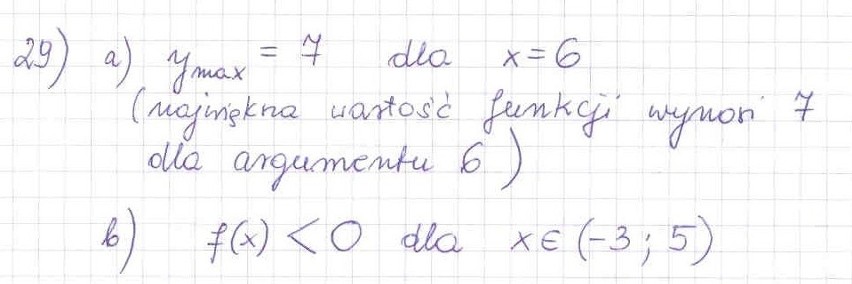 29) a) y max = 7 dla x = 6
(największa wartość funkcji wynosi 7
dla argumentu 6)
b) f(x) < 0 dla x ∈ (-3; 5)